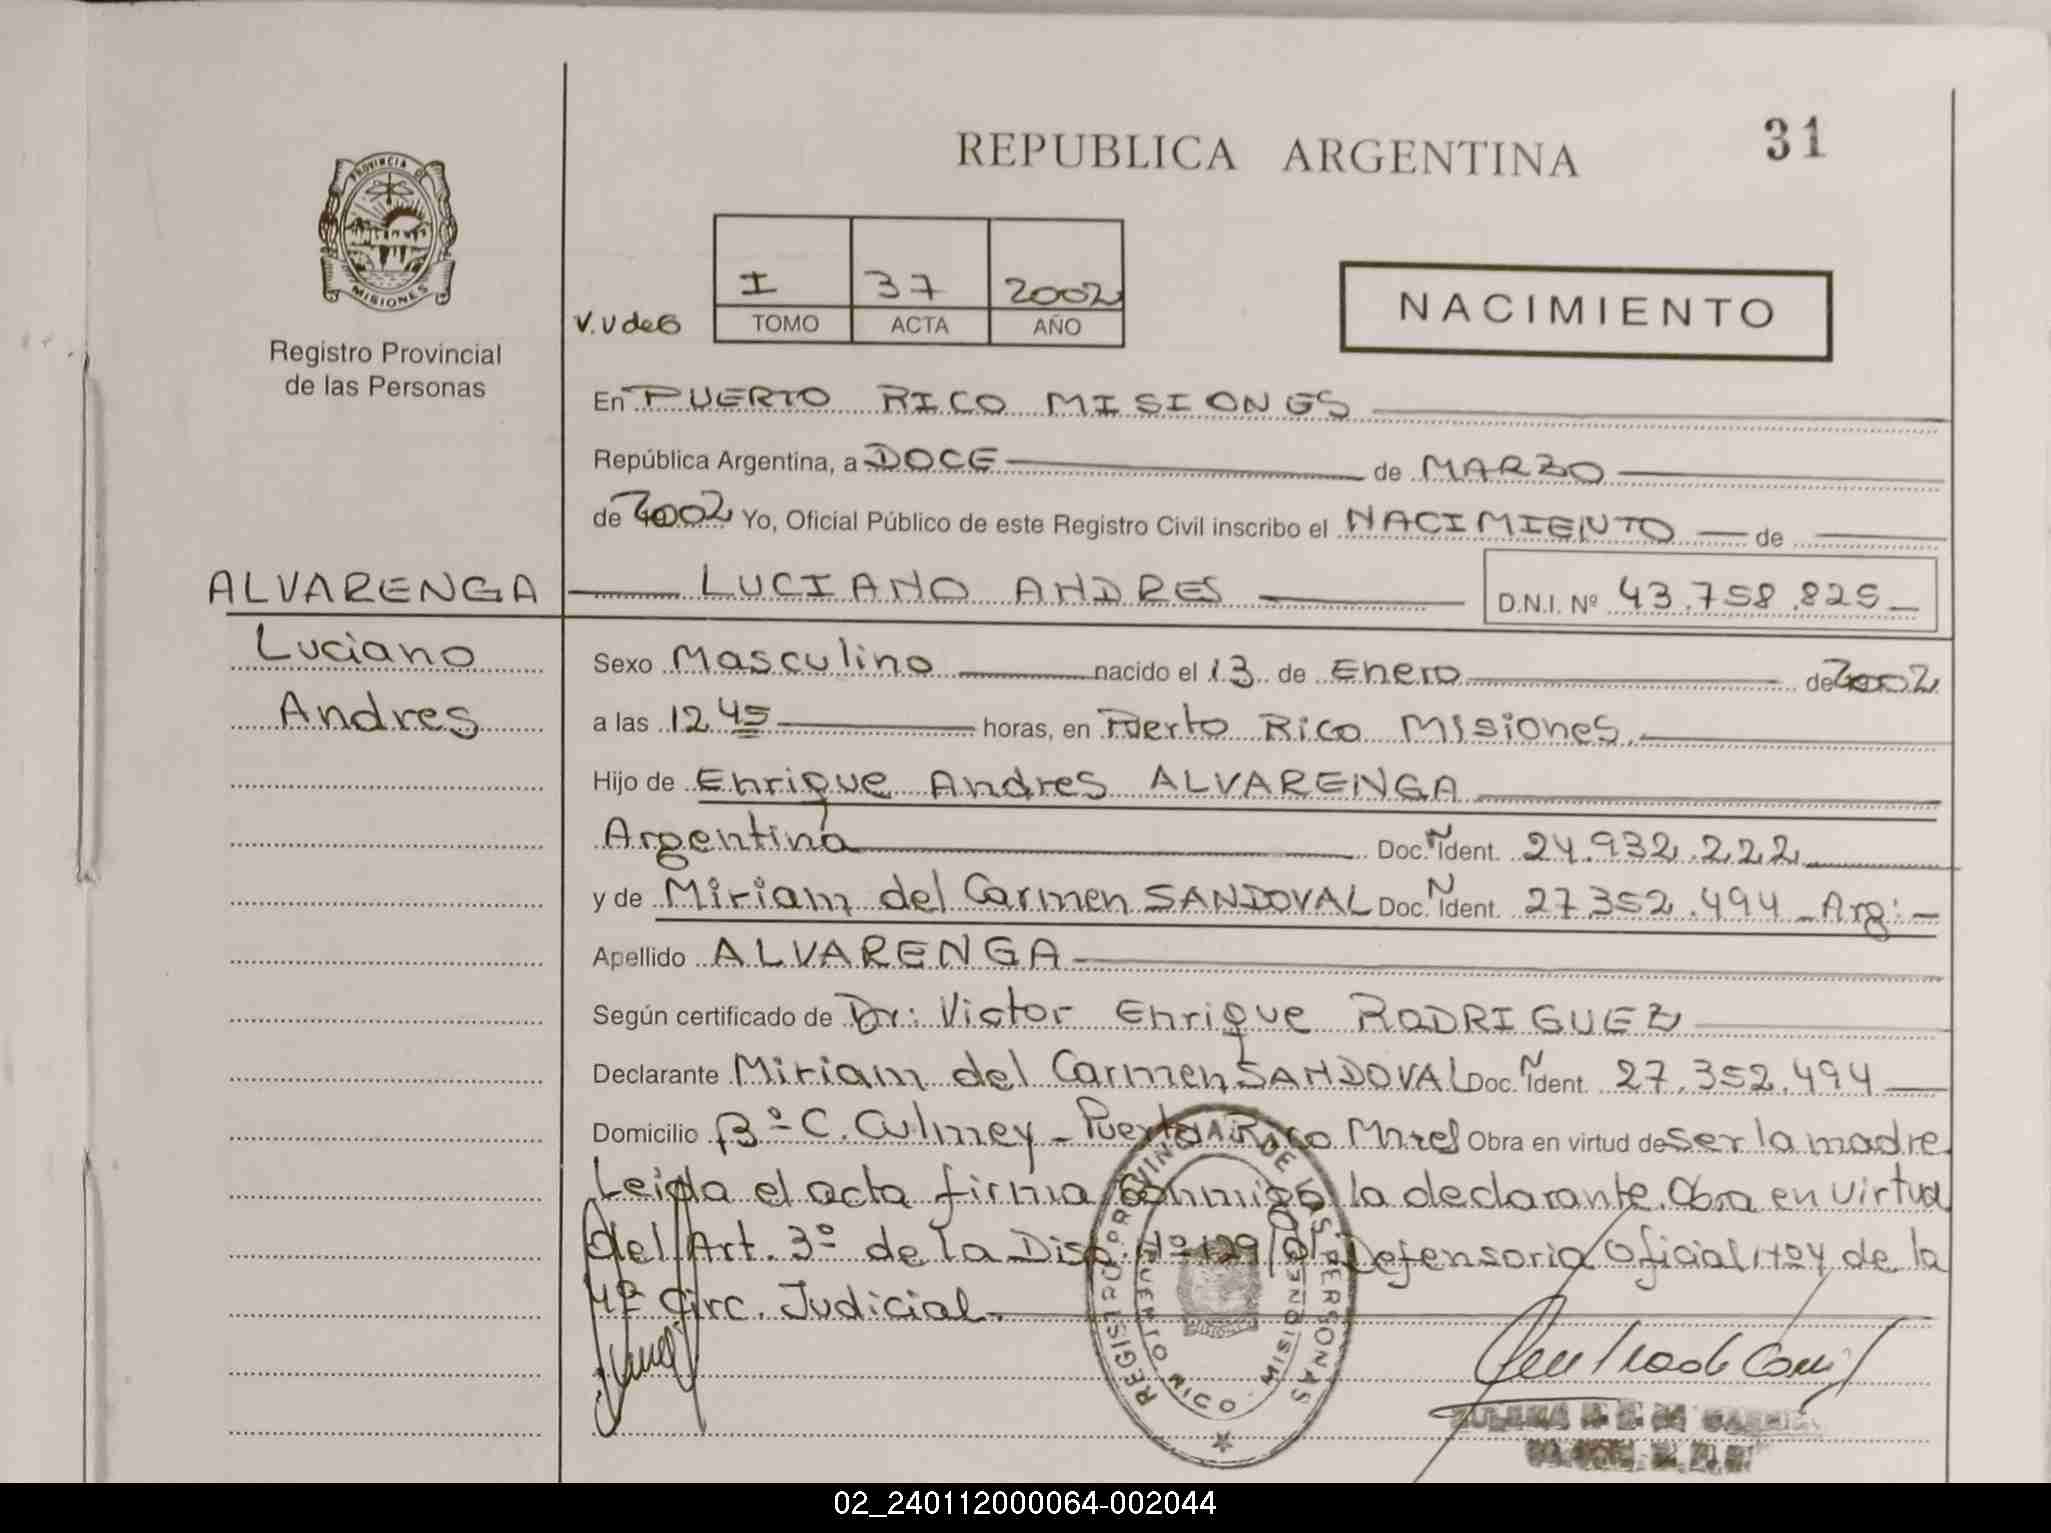 REPUBLICA ARGENTINA
31
PROVINCIA DE
MISIONES
Registro Provincial
de las Personas
V.V de G
I 37 2002
TOMO ACTA AÑO
NACIMIENTO
En PUERTO RICO MISIONES
República Argentina, a DOCE de MARZO
de 2002 Yo, Oficial Público de este Registro Civil inscribo el NACIMIENTO de
ALVARENGA LUCIANO ANDRES D.N.I. Nº 43.758.825
Luciano
Andres
Sexo Masculino nacido el 13 de Enero de 2002
a las 12 45 horas, en Puerto Rico Misiones.
Hijo de Enrique Andres ALVARENGA
Argentina Doc. N Ident. 24.932.222
y de Miriam del Carmen SANDOVAL Doc. N Ident. 27.352.494 Arg:
Apellido ALVARENGA
Según certificado de Dr: Victor Enrique RODRIGUEZ
Declarante Miriam del Carmen SANDOVAL Doc. N Ident. 27.352.494
Domicilio Bº C. Culmey - Puerto Rico Mnes Obra en virtud de ser la madre
Leida el acta firma conmigo la declarante. Obra en virtud
del Art. 3º de la Disp. Nº 129/01 Defensoria Oficial Nº4 de la
4º Circ. Judicial.
REGISTRO PROVINCIAL DE LAS PERSONAS
PUERTO RICO - MISIONES
02_240112000064-002044